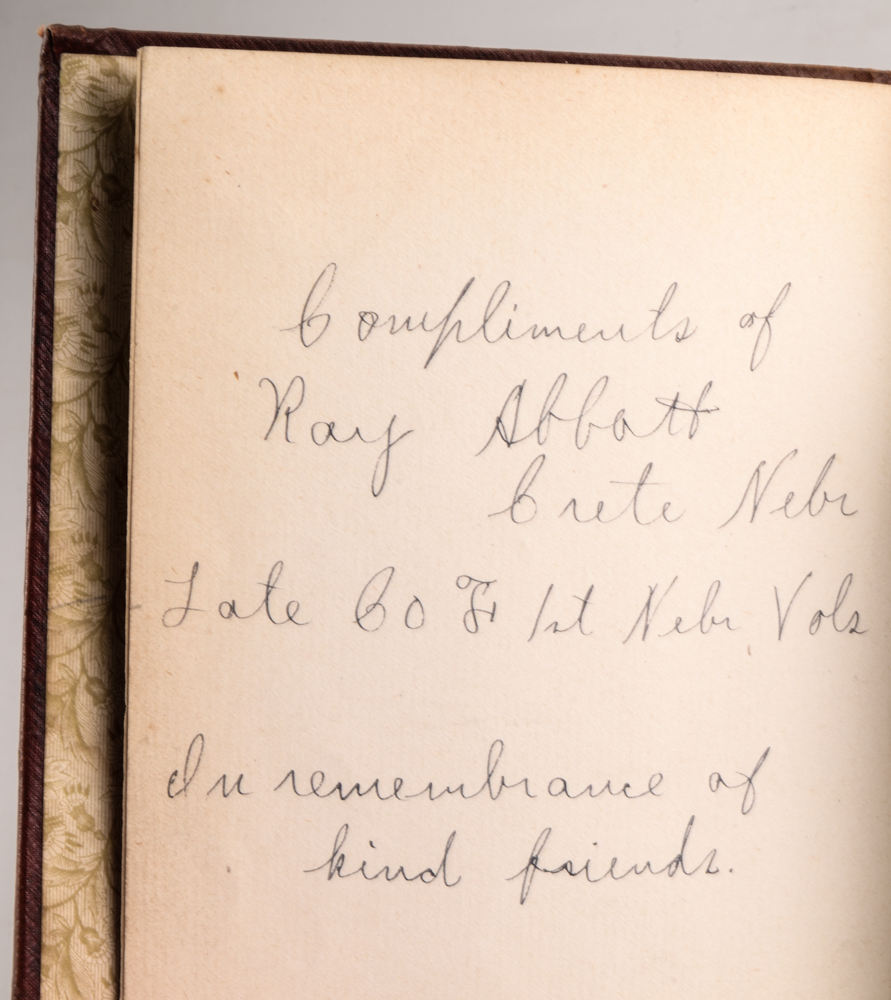 Compliments of
Ray Abbott
Crete Nebr
Late Co F 1st Nebr Vols
In remembrance of
kind friends.